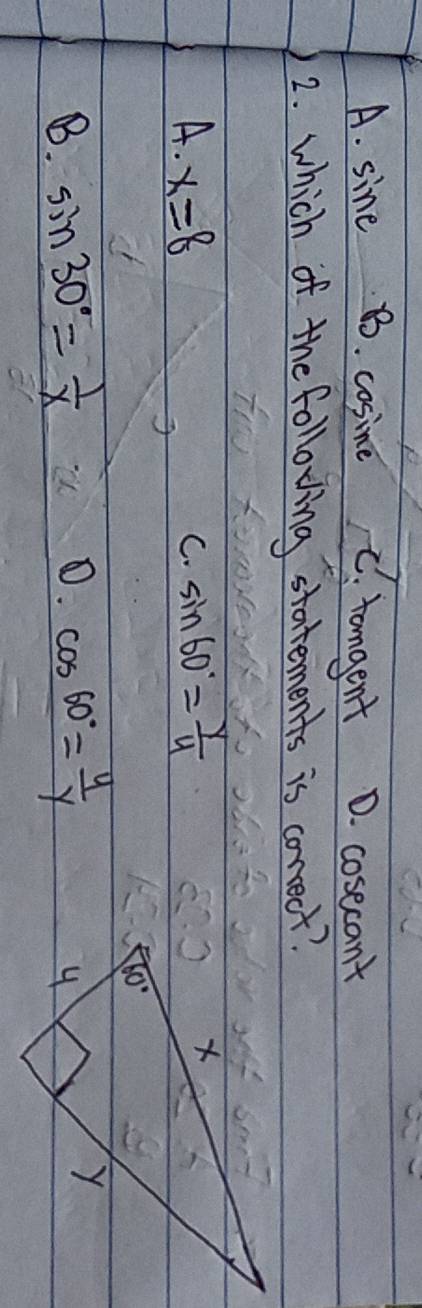 A. sine B. cosine C. tangent D. cosecant
2. which of the following statements is correct?
A. x=8 C. sin 60° = y/4
B. sin 30° = 1/x D. cos 60° = 4/y
60° x
4 y